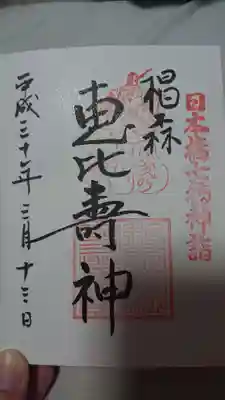 日本橋七福神詣
椙森
恵比壽神
平成三十年三月十三日